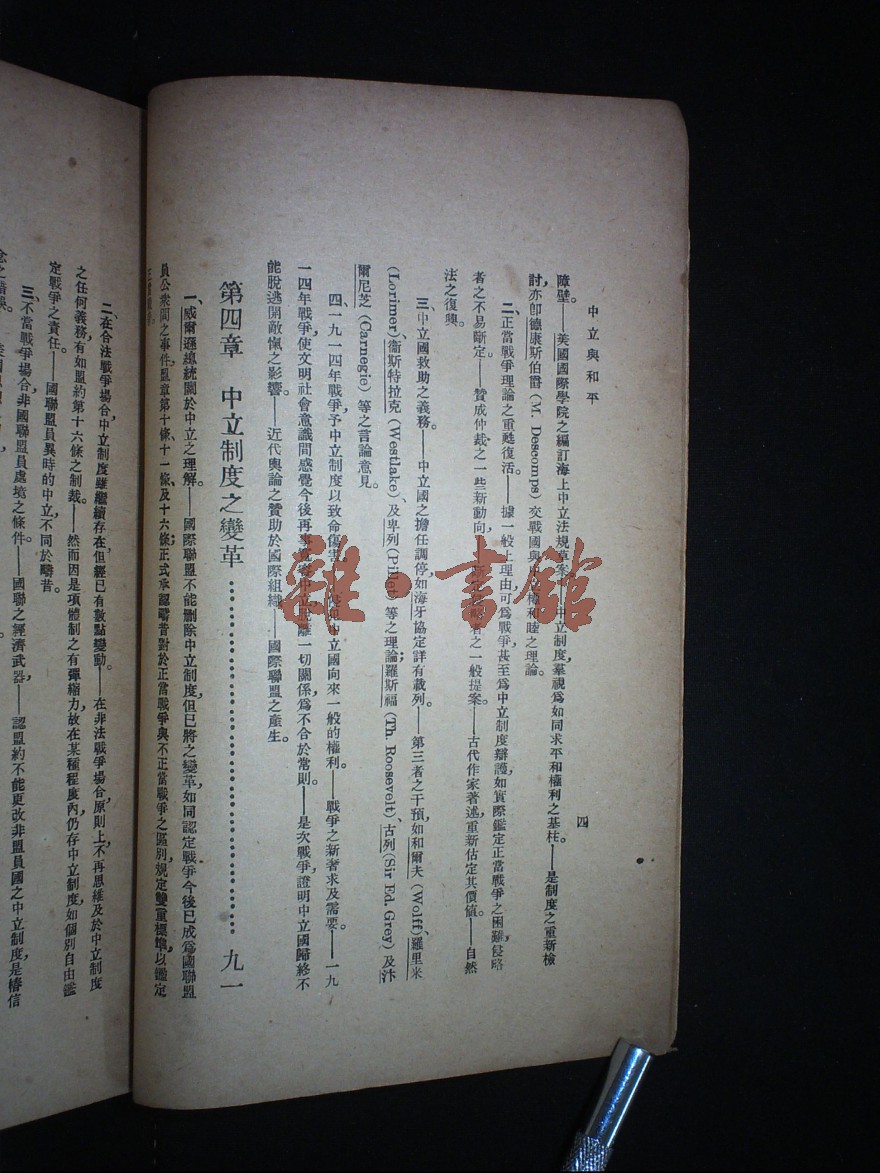 中立與和平
四
障壁。——美國國際學院之編訂海上中立法規草案——中立制度,羣視爲如同求平和權利之基柱。——是制度之重新檢
討,亦卽德康斯伯爵(M. Descomps)交戰國與中立權利睦之理論。
二、正當戰爭理論之重甦復活。——據一般上理由,可爲戰爭甚至爲中立制度辯護,如實際鑑定正當戰爭之困難,侵略
者之不易斷定——贊成仲裁之一些新動向 者之一般提案。——古代作家著述,重新估定其價值。——自然
法之復興。
三、中立國救助之義務。——中立國之擔任調停,如海牙協定詳有載列。——第三者之干預,如和爾夫(Wolff)、羅里米
(Lorimer)、衞斯特拉克(Westlake)、及卑列(Pillet)等之理論;羅斯福(Th. Roosevelt)、古列(Sir Ed. Grey)及汴
爾尼芝(Carnegie)等之言論意見。
四、一九一四年戰爭,予中立制度以致命傷害。 中立國向來一般的權利。——戰爭之新奢求及需要。——一九
一四年戰爭,使文明社會意識間感覺今後再事 中立脫離一切關係,爲不合於常則。——是次戰爭,證明中立國歸終不
能脫逃開敵愾之影響。——近代輿論之贊助於國際組織——國際聯盟之產生。
第四章 中立制度之變革 九一
一、威爾遜總統關於中立之理解。——國際聯盟不能刪除中立制度,但已將之變革,如同認定戰爭今後已成爲國聯盟
員公衆間之事件,盟章第十條、十一條、及十六條;正式承認疇昔對於正當戰爭與不正當戰爭之區別,規定雙重標準,以鑑定
二、在合法戰爭場合,中立制度雖繼續存在,但經已有數點變動。——在非法戰爭場合,原則上,不再思維及於中立制度
之任何義務,有如盟約第十六條之制裁。——然而因是項體制之有彈縮力,故在某種程度內,仍存中立制度,如個別自由鑑
定戰爭之責任。——國聯盟員異時的中立,不同於疇昔。
三、不當戰爭場合,非國聯盟員處境之條件。——國聯之經濟武器——認盟約不能更改非盟員國之中立制度,是樁信
念之錯誤。
雜·書館